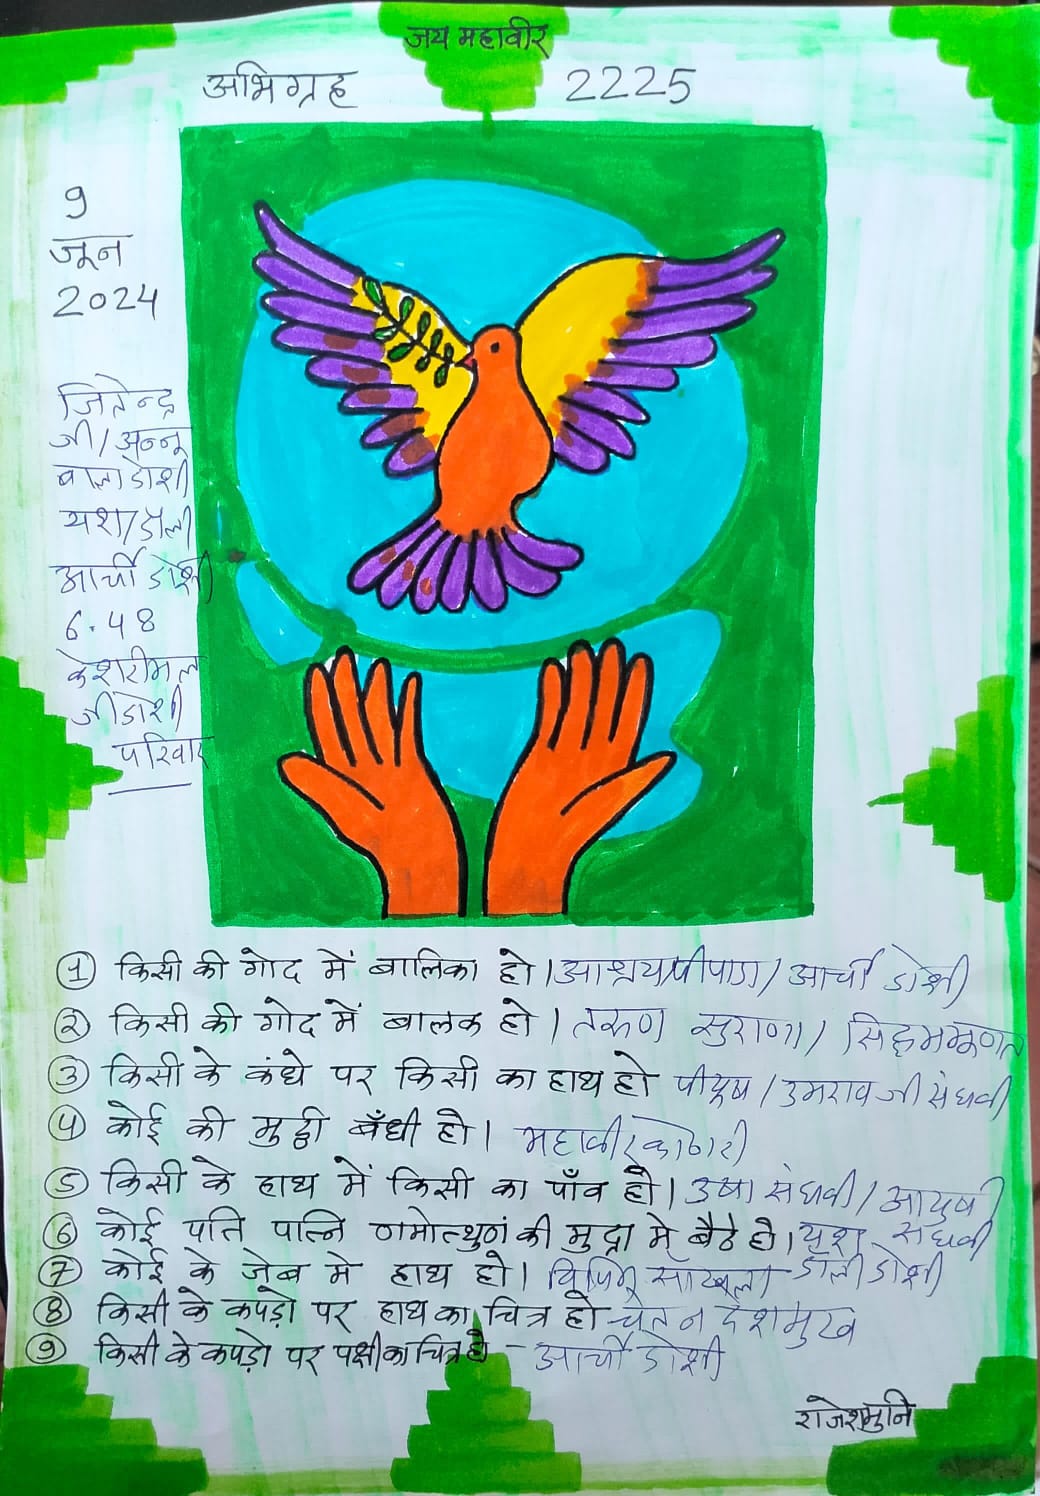 जय महावीर
अभिग्रह 2225
9
जून
2024
जितेन्द्र
जी/अन्नू
बाला डोशी
यश/डॉली
आर्ची डोशी
6.48
केशरीमल
जी डोशी
परिवार
① किसी की गोद में बालिका हो। / आर्ची डोशी
② किसी की गोद में बालक हो। तरुण सुराणा /
③ किसी के कंधे पर किसी का हाथ हो पीयूष / उमराव जी संघवी
④ कोई की मुट्ठी बँधी हो। महावीर कोठारी
⑤ किसी के हाथ में किसी का पाँव हो। उषा संघवी / आयुषी
संघवी
⑥ कोई पति पत्नि णमोत्थुणं की मुद्रा मे बैठे हो। यश
डॉली डोशी
⑦ कोई के जेब मे हाथ हो।
⑧ किसी के कपड़ो पर हाथ का चित्र हो - चेतन देशमुख
⑨ किसी के कपड़ो पर पक्षी का चित्र हो - आर्ची डोशी
राजेशमुनि